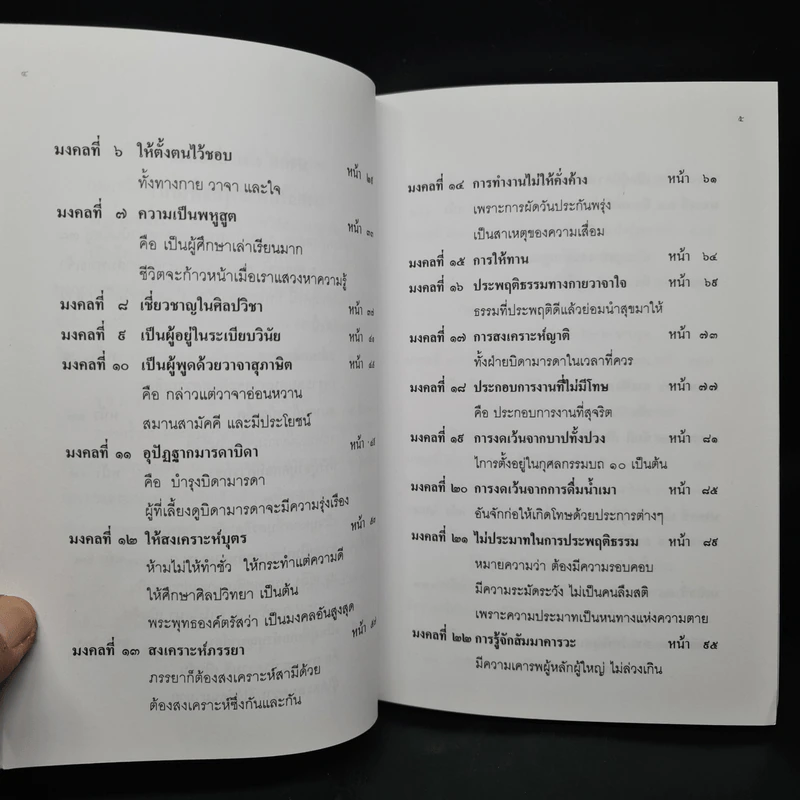 ๔
มงคลที่ ๖ ให้ตั้งตนไว้ชอบ หน้า
ทั้งทางกาย วาจา และใจ
มงคลที่ ๗ ความเป็นพหูสูต หน้า ๓๐
คือ เป็นผู้ศึกษาเล่าเรียนมาก
ชีวิตจะก้าวหน้าเมื่อเราแสวงหาความรู้
มงคลที่ ๘ เชี่ยวชาญในศิลปวิชา หน้า
มงคลที่ ๙ เป็นผู้อยู่ในระเบียบวินัย หน้า
มงคลที่ ๑๐ เป็นผู้พูดด้วยวาจาสุภาษิต หน้า
คือ กล่าวแต่วาจาอ่อนหวาน
สมานสามัคคี และมีประโยชน์
มงคลที่ ๑๑ อุปัฏฐากมารดาบิดา หน้า
คือ บำรุงบิดามารดา
ผู้ที่เลี้ยงดูบิดามารดาจะมีความรุ่งเรือง
มงคลที่ ๑๒ ให้สงเคราะห์บุตร หน้า
ห้ามไม่ให้ทำชั่ว ให้กระทำแต่ความดี
ให้ศึกษาศิลปวิทยา เป็นต้น
พระพุทธองค์ตรัสว่า เป็นมงคลอันสูงสุด
มงคลที่ ๑๓ สงเคราะห์ภรรยา หน้า
ภรรยาก็ต้องสงเคราะห์สามีด้วย
ต้องสงเคราะห์ซึ่งกันและกัน
๕
มงคลที่ ๑๔ การทำงานไม่ให้คั่งค้าง หน้า ๖๑
เพราะการผัดวันประกันพรุ่ง
เป็นสาเหตุของความเสื่อม
มงคลที่ ๑๕ การให้ทาน หน้า ๖๔
มงคลที่ ๑๖ ประพฤติธรรมทางกายวาจาใจ หน้า ๖๙
ธรรมที่ประพฤติดีแล้วย่อมนำสุขมาให้
มงคลที่ ๑๗ การสงเคราะห์ญาติ หน้า ๗๓
ทั้งฝ่ายบิดามารดาในเวลาที่ควร
มงคลที่ ๑๘ ประกอบการงานที่ไม่มีโทษ หน้า ๗๗
คือ ประกอบการงานที่สุจริต
มงคลที่ ๑๙ การงดเว้นจากบาปทั้งปวง หน้า ๘๑
ไการตั้งอยู่ในกุศลกรรมบถ ๑๐ เป็นต้น
มงคลที่ ๒๐ การงดเว้นจากการดื่มน้ำเมา หน้า ๘๕
อันจักก่อให้เกิดโทษด้วยประการต่างๆ
มงคลที่ ๒๑ ไม่ประมาทในการประพฤติธรรม หน้า ๘๙
หมายความว่า ต้องมีความรอบคอบ
มีความระมัดระวัง ไม่เป็นคนลืมสติ
เพราะความประมาทเป็นหนทางแห่งความตาย
มงคลที่ ๒๒ การรู้จักสัมมาคารวะ หน้า ๙๕
มีความเคารพผู้หลักผู้ใหญ่ ไม่ล่วงเกิน